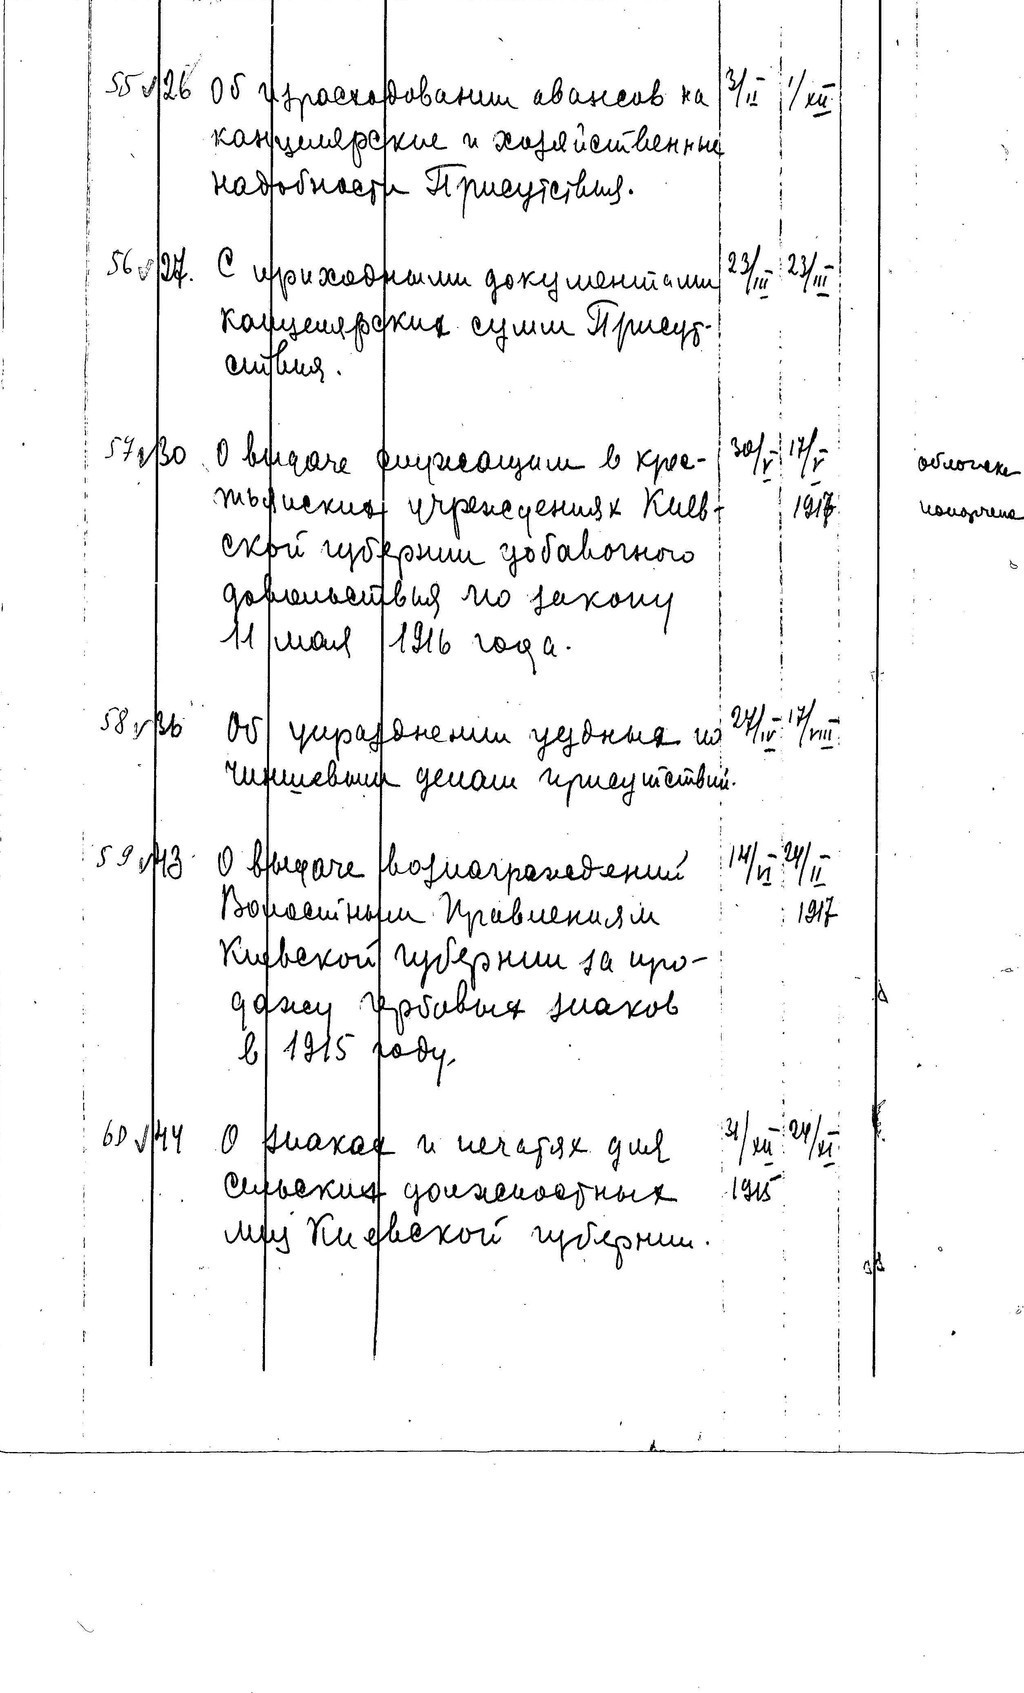 55 √ 26 Об израсходовании авансов на 3/II 1/XII
канцелярские и хозяйственные
надобности Присутствия.
56 √ 27. С приходными документами 23/III 23/III
канцелярских сумм Присут-
ствия.
57 √ 30 О выдаче служащим в крес- 30/V 17/V облож
тьянских учреждениях Киев- 1917
ской губернии добавочного
довольствия по закону
11 мая 1916 года.
58 √ 36 Об упразднении уездных по 27/IV 17/VIII
чиншевым делам присутствий.
59 √ 43 О выдаче вознаграждений 14/VI 24/II
Волостным Правлениям 1917
Киевской губернии за про-
дажу гербовых знаков
в 1915 году.
60 √ 44 О знаках и печатях для 31/XII 24/XI
сельских должностных 1915
лиц Киевской губернии.